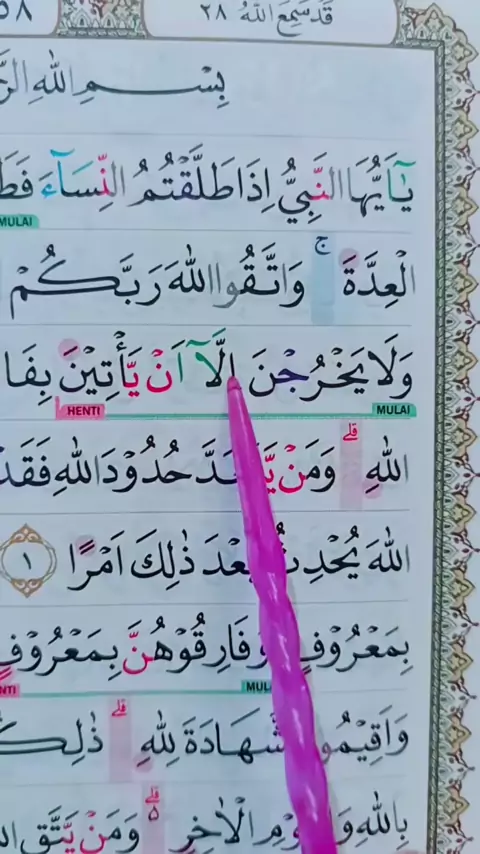 قَدْ سَمِعَ اللّٰهُ ٢٨
٥٨
بِسْمِ اللّٰهِ
يٰٓاَيُّهَا النَّبِيُّ اِذَا طَلَّقْتُمُ النِّسَاۤءَ
MULAI
الْعِدَّةَۚ وَاتَّقُوا اللّٰهَ رَبَّكُمْ
وَلَا يَخْرُجْنَ اِلَّآ اَنْ يَّأْتِيْنَ
HENTI MULAI
اللّٰهِ ۗ وَمَنْ حُدُوْدَ اللّٰهِ فَقَدْ
اللّٰهَ يُحْدِثُ بَعْدَ ذٰلِكَ اَمْرًا ١
بِمَعْرُوْفٍ فَارِقُوْهُنَّ بِمَعْرُوْفٍ
وَاَقِيْمُوا الشَّهَادَةَ لِلّٰهِ ۗ
بِاللّٰهِ الْاٰخِرِ ۗ ە وَمَنْ يَّتَّقِ